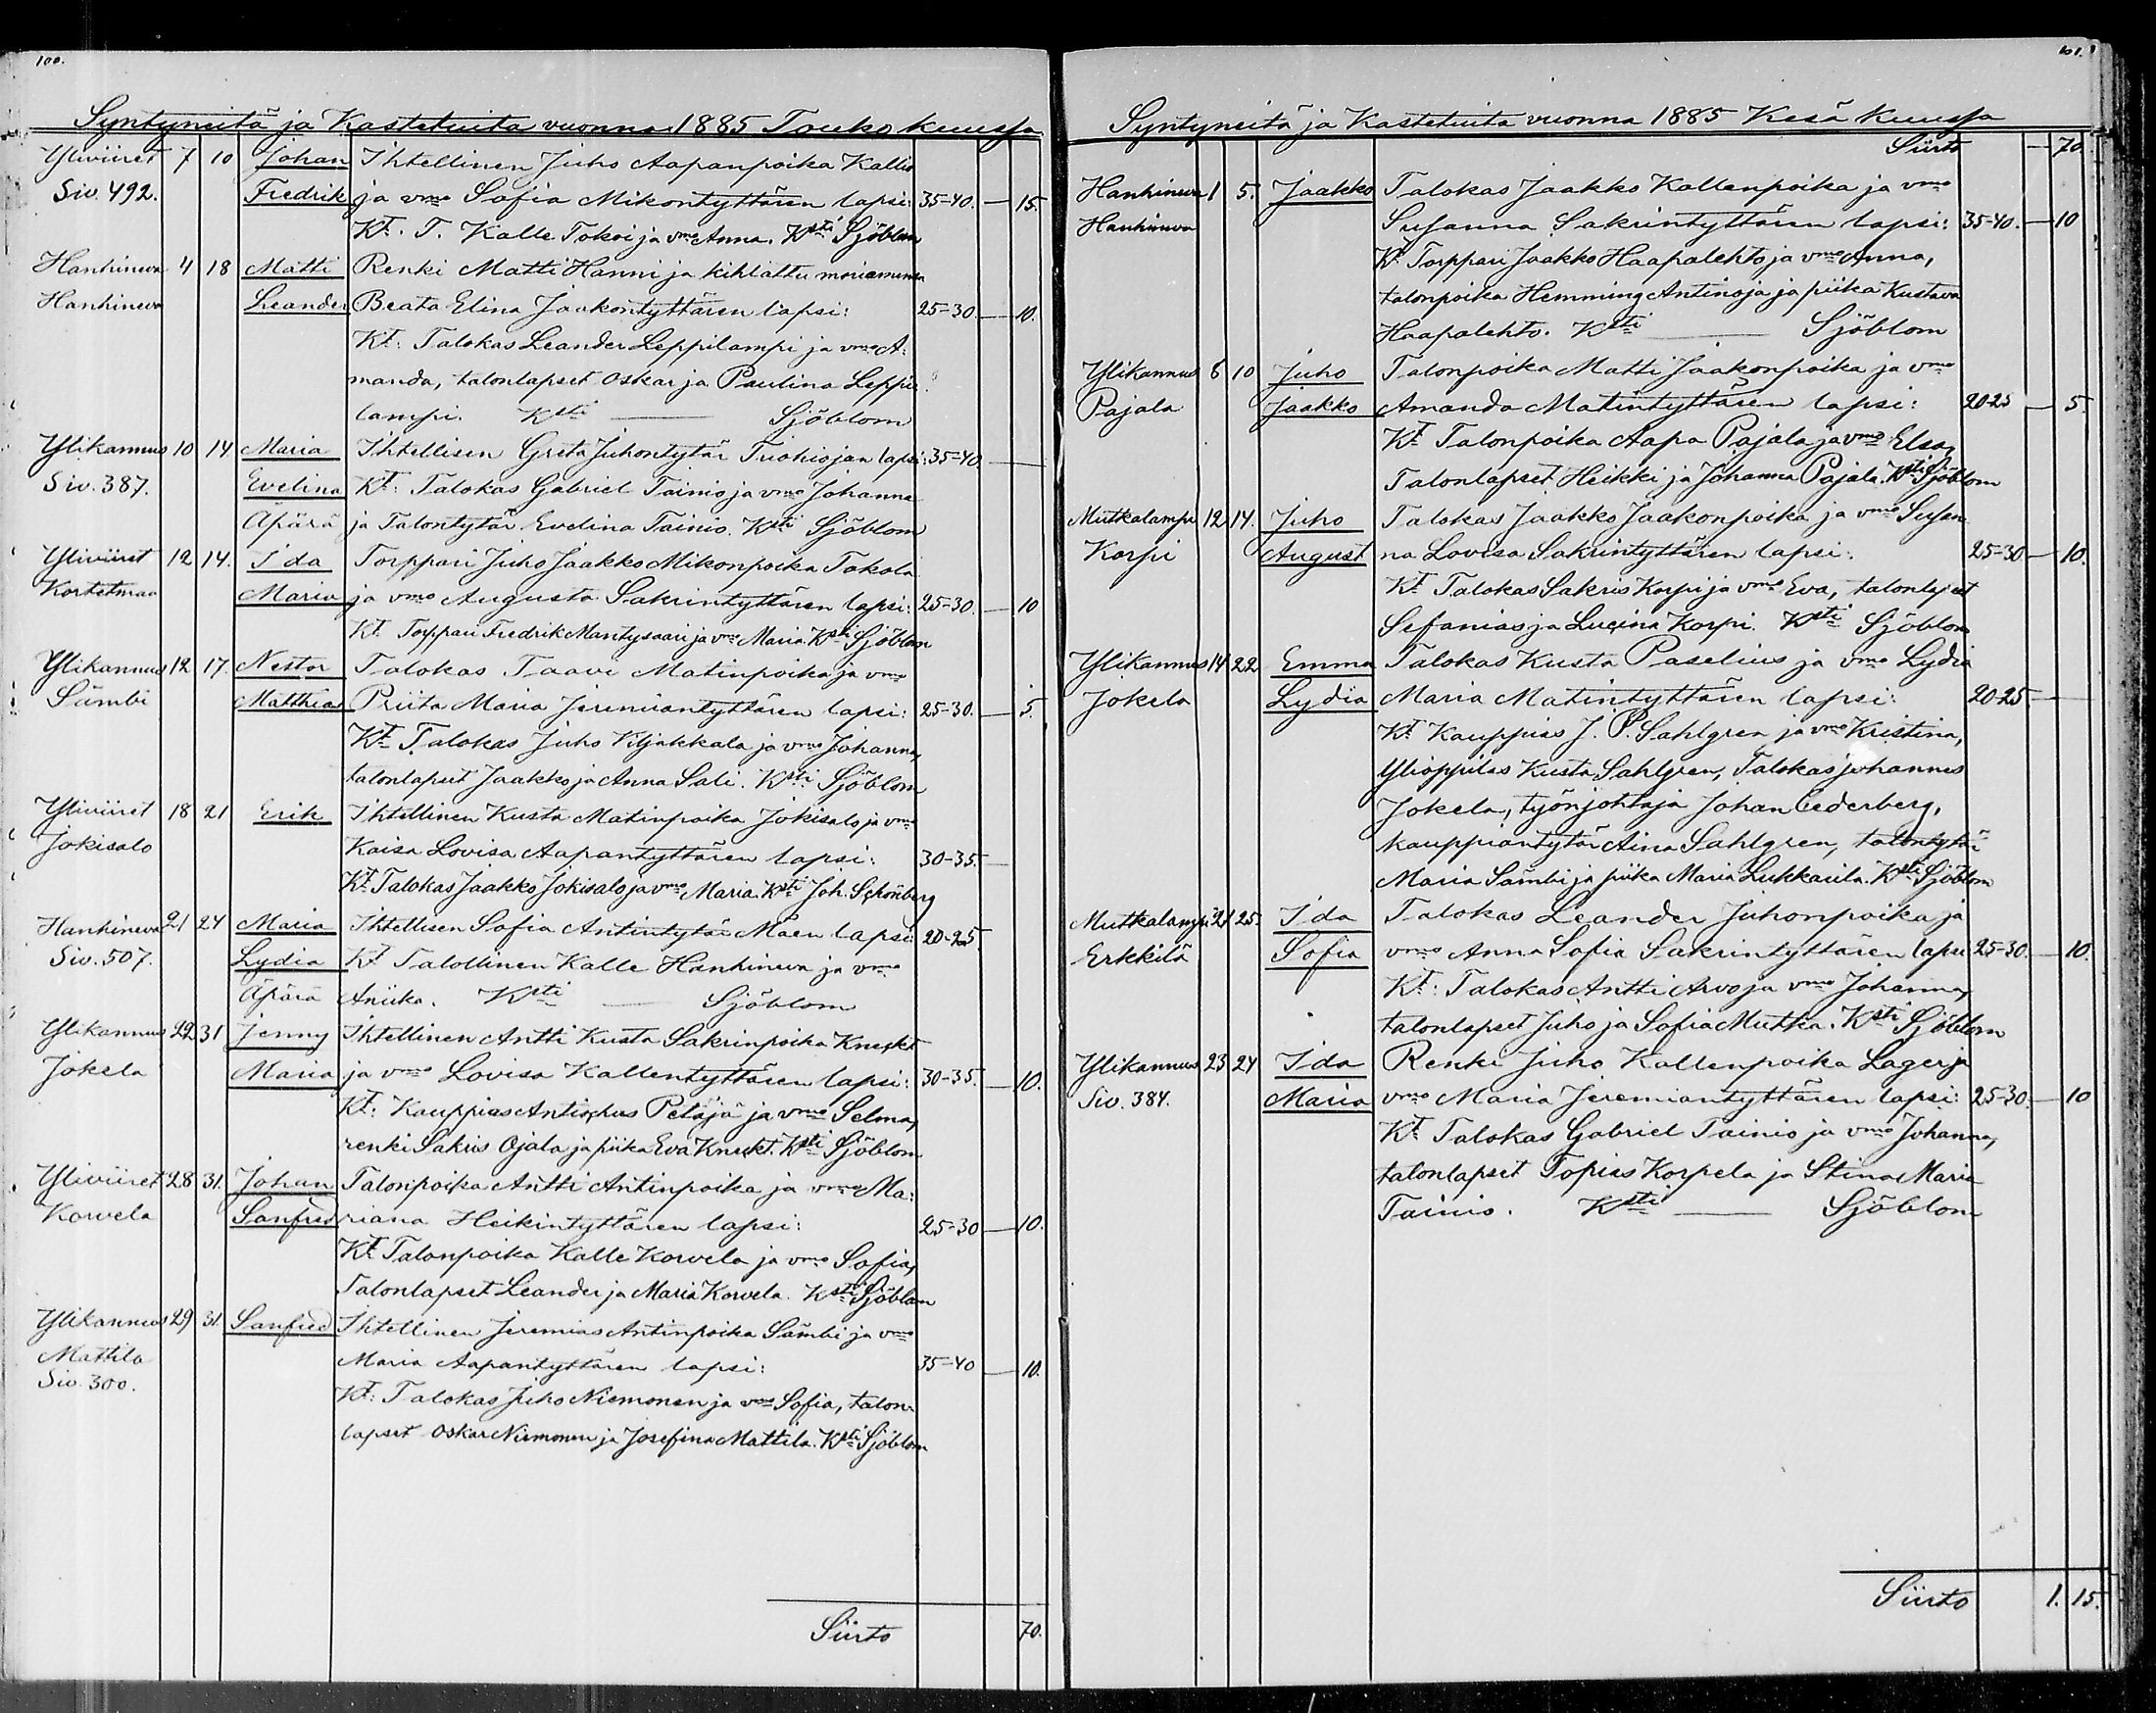 100.
Syntyneitä ja Kastetuita vuonna 1885 Touko kuussa
Yliviiret 7 10 Johan Ihtellinen Juho Aapanpoika Kallio
Siv. 492. Fredrik ja vmo Sofia Mikontyttären lapsi: 35-40. — 15.
Kt. T. Kalle Tokoi ja vmo Anna. Ksti Sjöblom
Hanhineva 4 18 Matti Renki Matti Hanni ja kihlattu morsiamensa
Hanhineva Leander Beata Elina Jaakontyttären lapsi: 25-30. — 10.
Kt: Talokas Leander Leppilampi ja vmo A:
manda, talonlapset Oskar ja Paulina Leppi:
lampi. Ksti — Sjöblom
Ylikannus 10 14 Maria Ihtellisen Greta Juhontytär Triohiojan lapsi: 35-40. —
Siv. 387. Evelina Kt: Talokas Gabriel Tainio ja vmo Johanna
Äpärä ja Talontytär Evelina Tainio. Ksti Sjöblom
Yliviiret 12 14. Ida Torppari Juho Jaakko Mikonpoika Tokola
Kortetmaa Maria ja vmo Augusta Sakrintyttären lapsi: 25-30. — 10
Kt. Torppari Fredrik Mantysaari ja vmo Maria. Ksti Sjöblom
Ylikannus 12 17. Nestor Talokas Taavi Matinpoika ja vmo
Sämbi Matthias Priita Maria Jeremiantyttären lapsi: 25-30. — 5.
Kt Talokas Juho Viljakkala ja vmo Johanna,
talonlapset Jaakko ja Anna Sali. Ksti Sjöblom
Yliviiret 18 21 Erik Ihtellinen Kusta Matinpoika Jokisalo ja vmo
Jokisalo Kaisa Lovisa Aapantyttären lapsi: 30-35. —
Kt. Talokas Jaakko Jokisalo ja vmo Maria. Ksti Joh. Schönberg
Hanhineva 21 24 Maria Ihtellisen Sofia Antintytär Mäen lapsi: 20-25
Siv. 507. Lydia Kt Talollinen Kalle Hanhineva ja vmo
Äpärä Aniika. Ksti — Sjöblom
Ylikannus 22 31 Jenny Ihtellinen Antti Kusta Sakrinpoika Knekt
Jokela Maria ja vmo Lovisa Kallentyttären lapsi: 30-35. — 10.
Kt: Kauppias Antiochus Petäjä ja vmo Selma,
renki Sakris Ojala ja piika Eva Knekt. Ksti Sjöblom
Yliviiret 28 31. Johan Talonpoika Antti Antinpoika ja vmo Ma:
Korvela Sanfred riana Heikintyttären lapsi: 25-30 — 10.
Kt. Talonpoika Kalle Korvela ja vmo Sofia,
Talonlapset Leander ja Maria Korvela. Ksti Sjöblom
Ylikannus 29 31. Sanfred Ihtellinen Jeremias Antinpoika Sämbi ja vmo
Mattila Maria Aapantyttären lapsi: 35-40 — 10.
Siv. 300.
Kt: Talokas Juho Niemonen ja vmo Sofia, talon:
lapset Oskar Niemonen ja Josefina Mattila. Ksti Sjöblom
Siirto 70.
101.
Syntyneitä ja Kastetuita vuonna 1885 Kesä kuussa
Siirto — 70.
Hanhineva 1 5. Jaakko Talokas Jaakko Kallenpoika ja vmo
Hanhineva Susanna Sakrintyttären lapsi: 35-40. — 10
Kt Torppari Jaakko Haapalehto ja vmo Anna,
talonpoika Hemming Antinoja ja piika Kustava
Haapalehto. Ksti — Sjöblom
Ylikannus 6 10 Juho Talonpoika Matti Jaakonpoika ja vmo
Pajala Jaakko Amanda Matintyttären lapsi: 20-25 — 5.
Kt Talonpoika Aapa Pajala ja vmo Elsa,
Talonlapset Heikki ja Johanna Pajala. Ksti Sjöblom
Mutkalampi 12 14. Juho Talokas Jaakko Jaakonpoika ja vmo Susan
Korpi August na Lovisa Sakrintyttären lapsi: 25-30 — 10.
Kt Talokas Sakris Korpi ja vmo Eva, talonlapset
Sefanias ja Lucina Korpi. Ksti Sjöblom
Ylikannus 14 22 Emma Talokas Kusta Paselius ja vmo Lydia
Jokela Lydia Maria Matintyttären lapsi: 20-25 —
Kt Kauppias J. P. Sahlgren ja vmo Kristina,
Ylioppilas Kusta Sahlgren, Talokas Johannes
Jokela, työnjohtaja Johan Cederberg,
kauppiantytär Aina Sahlgren, talontytär
Maria Sämbi ja piika Maria Lukkarila. Ksti Sjöblom
Mutkalampi 21 25. Ida Talokas Leander Juhonpoika ja
Erkkilä Sofia vmo Anna Sofia Sakrintyttären lapsi 25-30. — 10.
Kt: Talokas Antti Arvo ja vmo Johanna,
talonlapset Juho ja Sofia Mutka. Ksti Sjöblom
Ylikannus 23 24 Ida Renki Juho Kallenpoika Lager ja
Siv. 384. Maria vmo Maria Jeremiantyttären lapsi: 25-30. — 10
Kt Talokas Gabriel Tainio ja vmo Johanna,
talonlapset Topias Korpela ja Stina Maria
Tainio. Ksti — Sjöblom
Siirto 1. 15.